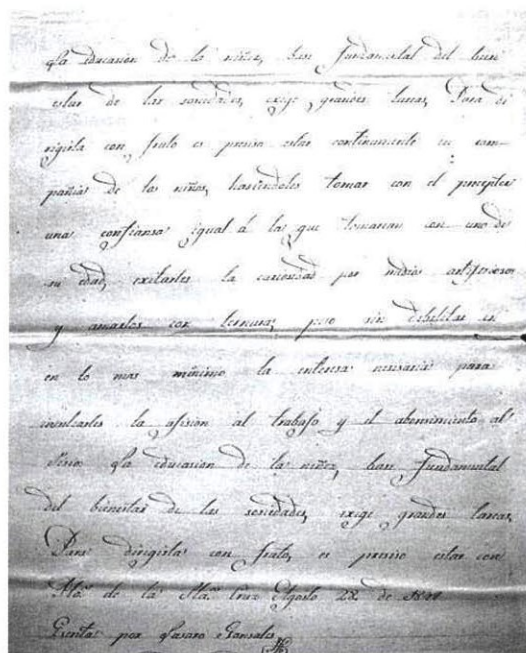 La educacion de la niñez, base fundamental del bien
estar de las sociedades, exige grandes tareas, Para di
rigirla con fruto es preciso estar continuamente en com-
pañia de los niños, haciendoles tomar con el preceptor
una confianza igual á la que tomarian con uno de
su edad, exitarles la curiosidad por medios
y amarlos con ternura; pero sin debilitar en
en lo mas minimo la entereza necesaria para
inculcarles la afision al trabajo y el aborrecimiento al
La educacion de la niñez, base fundamental
del bienestar de las sociedades, exige grandes tareas,
Para dirigirla con fruto, es preciso estar con
Sta. de la Sta. Cruz Agosto 28 de
Escrita por Lasaro Gonsales